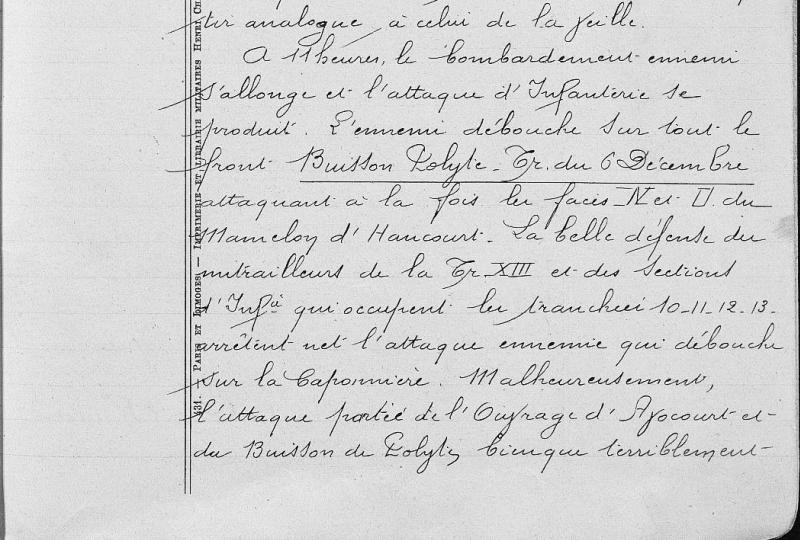 tir analogue à celui de la veille.
A 11 heures, le bombardement ennemi
s'allonge et l'attaque d'Infanterie se
produit. L'ennemi débouche sur tout le
front Buisson Polyte - Tr. du 6 Décembre
attaquant à la fois les faces N et O. du
Mamelon d'Haucourt. La belle défense du
mitrailleurs de la Tr. XIII et des sections
d'Infie qui occupent les tranchées 10-11-12-13-
arrêtent net l'attaque ennemie qui débouche
sur la Caponnière. Malheureusement,
l'attaque partie de l'Ouvrage d'Avocourt et
du Buisson de Polyte, bien que terriblement
431. — PARIS ET LIMOGES. — IMPRIMERIE ET LIBRAIRIE MILITAIRES HENRI